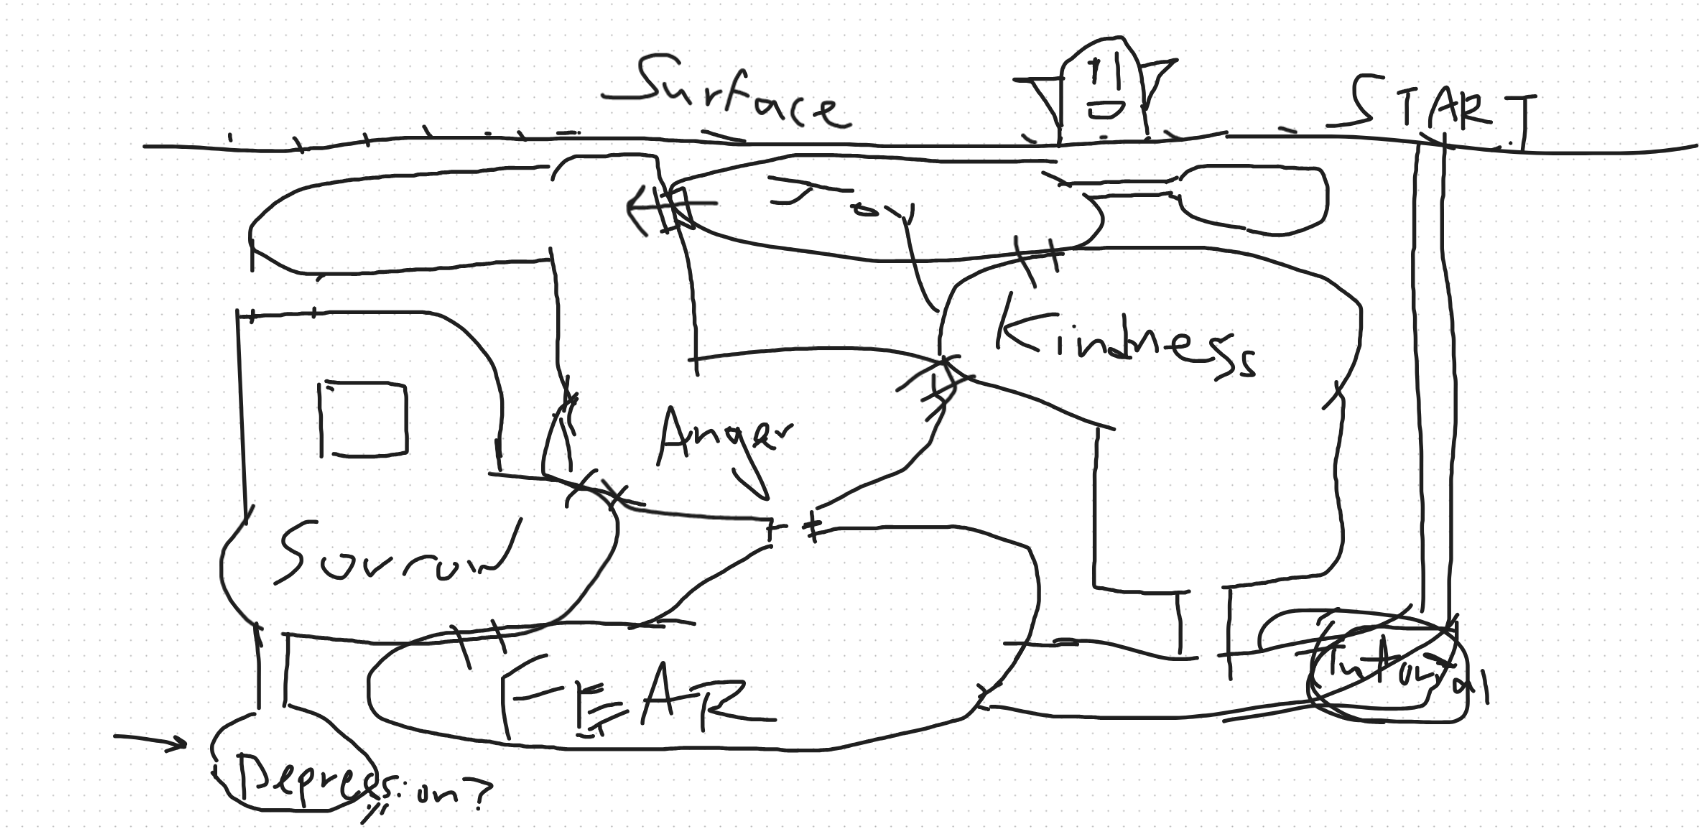 Surface
START
Joy
Kindness
Anger
Sorrow
FEAR
Depression?